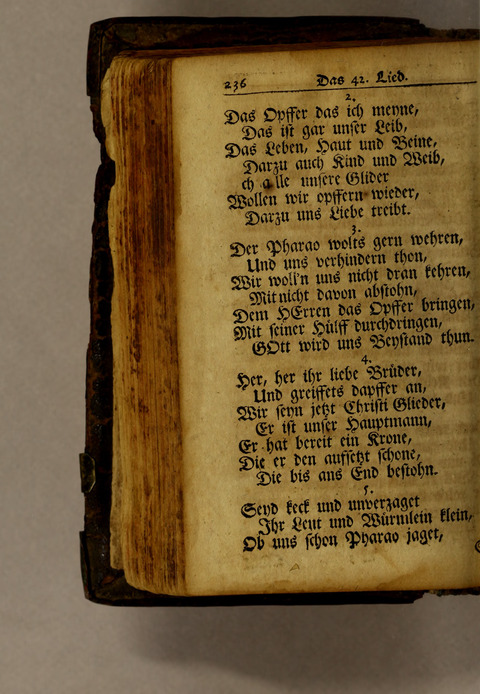 236 Das 42. Lied.
2.
Das Opffer das ich meyne,
Das ist gar unser Leib,
Das Leben, Haut und Beine,
Darzu auch Kind und Weib,
ch alle unsere Glider
Wollen wir opffern wieder,
Darzu uns Liebe treibt.
3.
Der Pharao wolts gern wehren,
Und uns verhindern thon,
Wir woll'n uns nicht dran kehren,
Mit nicht davon abstohn,
Dem HErren das Opffer bringen,
Mit seiner Hülff durchdringen,
GOtt wird uns Beystand thun.
4.
Her, her ihr liebe Brüder,
Und greiffets dapffer an,
Wir seyn jetzt Christi Glieder,
Er ist unser Hauptmann,
Er hat bereit ein Krone,
Die er den aufsetzt schone,
Die bis ans End bestohn.
5.
Seyd keck und unverzaget
Ihr Leut und Würmlein klein,
Ob uns schon Pharao jaget,